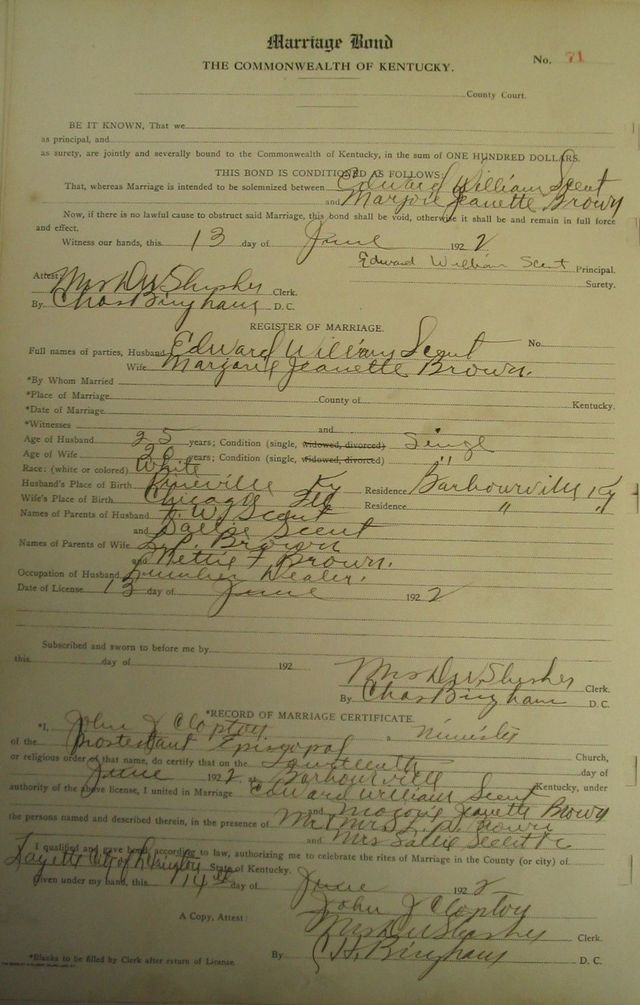 Marriage Bond
THE COMMONWEALTH OF KENTUCKY.
No. 71
County Court.
BE IT KNOWN, That we
as principal, and
as surety, are jointly and severally bound to the Commonwealth of Kentucky, in the sum of ONE HUNDRED DOLLARS.
THIS BOND IS CONDITIONED AS FOLLOWS:
That, whereas Marriage is intended to be solemnized between Edward William Scent
and Marjorie Jeanette Brown
Now, if there is no lawful cause to obstruct said Marriage, this bond shall be void, otherwise it shall be and remain in full force
and effect.
Witness our hands, this 13 day of June 1922
Edward William Scent Principal.
Surety.
Attest: Mrs D W Slusher Clerk.
By Chas Bingham D. C.
REGISTER OF MARRIAGE.
No.
Full names of parties, Husband Edward William Scent
Wife Marjorie Jeanette Brown.
*By Whom Married
*Place of Marriage County of Kentucky.
*Date of Marriage
*Witnesses and
Age of Husband 25 years; Condition (single, widowed, divorced) Single
Age of Wife 20 years; Condition (single, widowed, divorced) "
Race: (white or colored) White
Husband's Place of Birth Pineville Ky Residence Barbourville Ky
Wife's Place of Birth Chicago Ill Residence " "
Names of Parents of Husband W. Scent
and Sallie Scent
Names of Parents of Wife L. P. Brown
and Nettie F Brown.
Occupation of Husband Lumber Dealer.
Date of License 13 day of June 1922
Subscribed and sworn to before me by
this day of 192
Mrs D W Slusher Clerk.
By Chas Bingham D. C.
*RECORD OF MARRIAGE CERTIFICATE.
*I, John J Clopton a Minister
of the Prostestant Episcopal Church,
or religious order of that name, do certify that on the fourteenth day of
June 1922 at Barbourville Kentucky, under
authority of the above license, I united in Marriage Edward William Scent
and Jeanette Brown
the persons named and described therein, in the presence of Mr & Mrs L. P. Brown
and Mrs Sallie
I qualified and gave bond, according to law, authorizing me to celebrate the rites of Marriage in the County (or city) of
Fayette City of Lexington State of Kentucky.
Given under my hand, this 14th day of June 1922
John J Clopton
A Copy, Attest: Mrs D W Slusher Clerk.
By Bingham D. C.
*Blanks to be filled by Clerk after return of License.